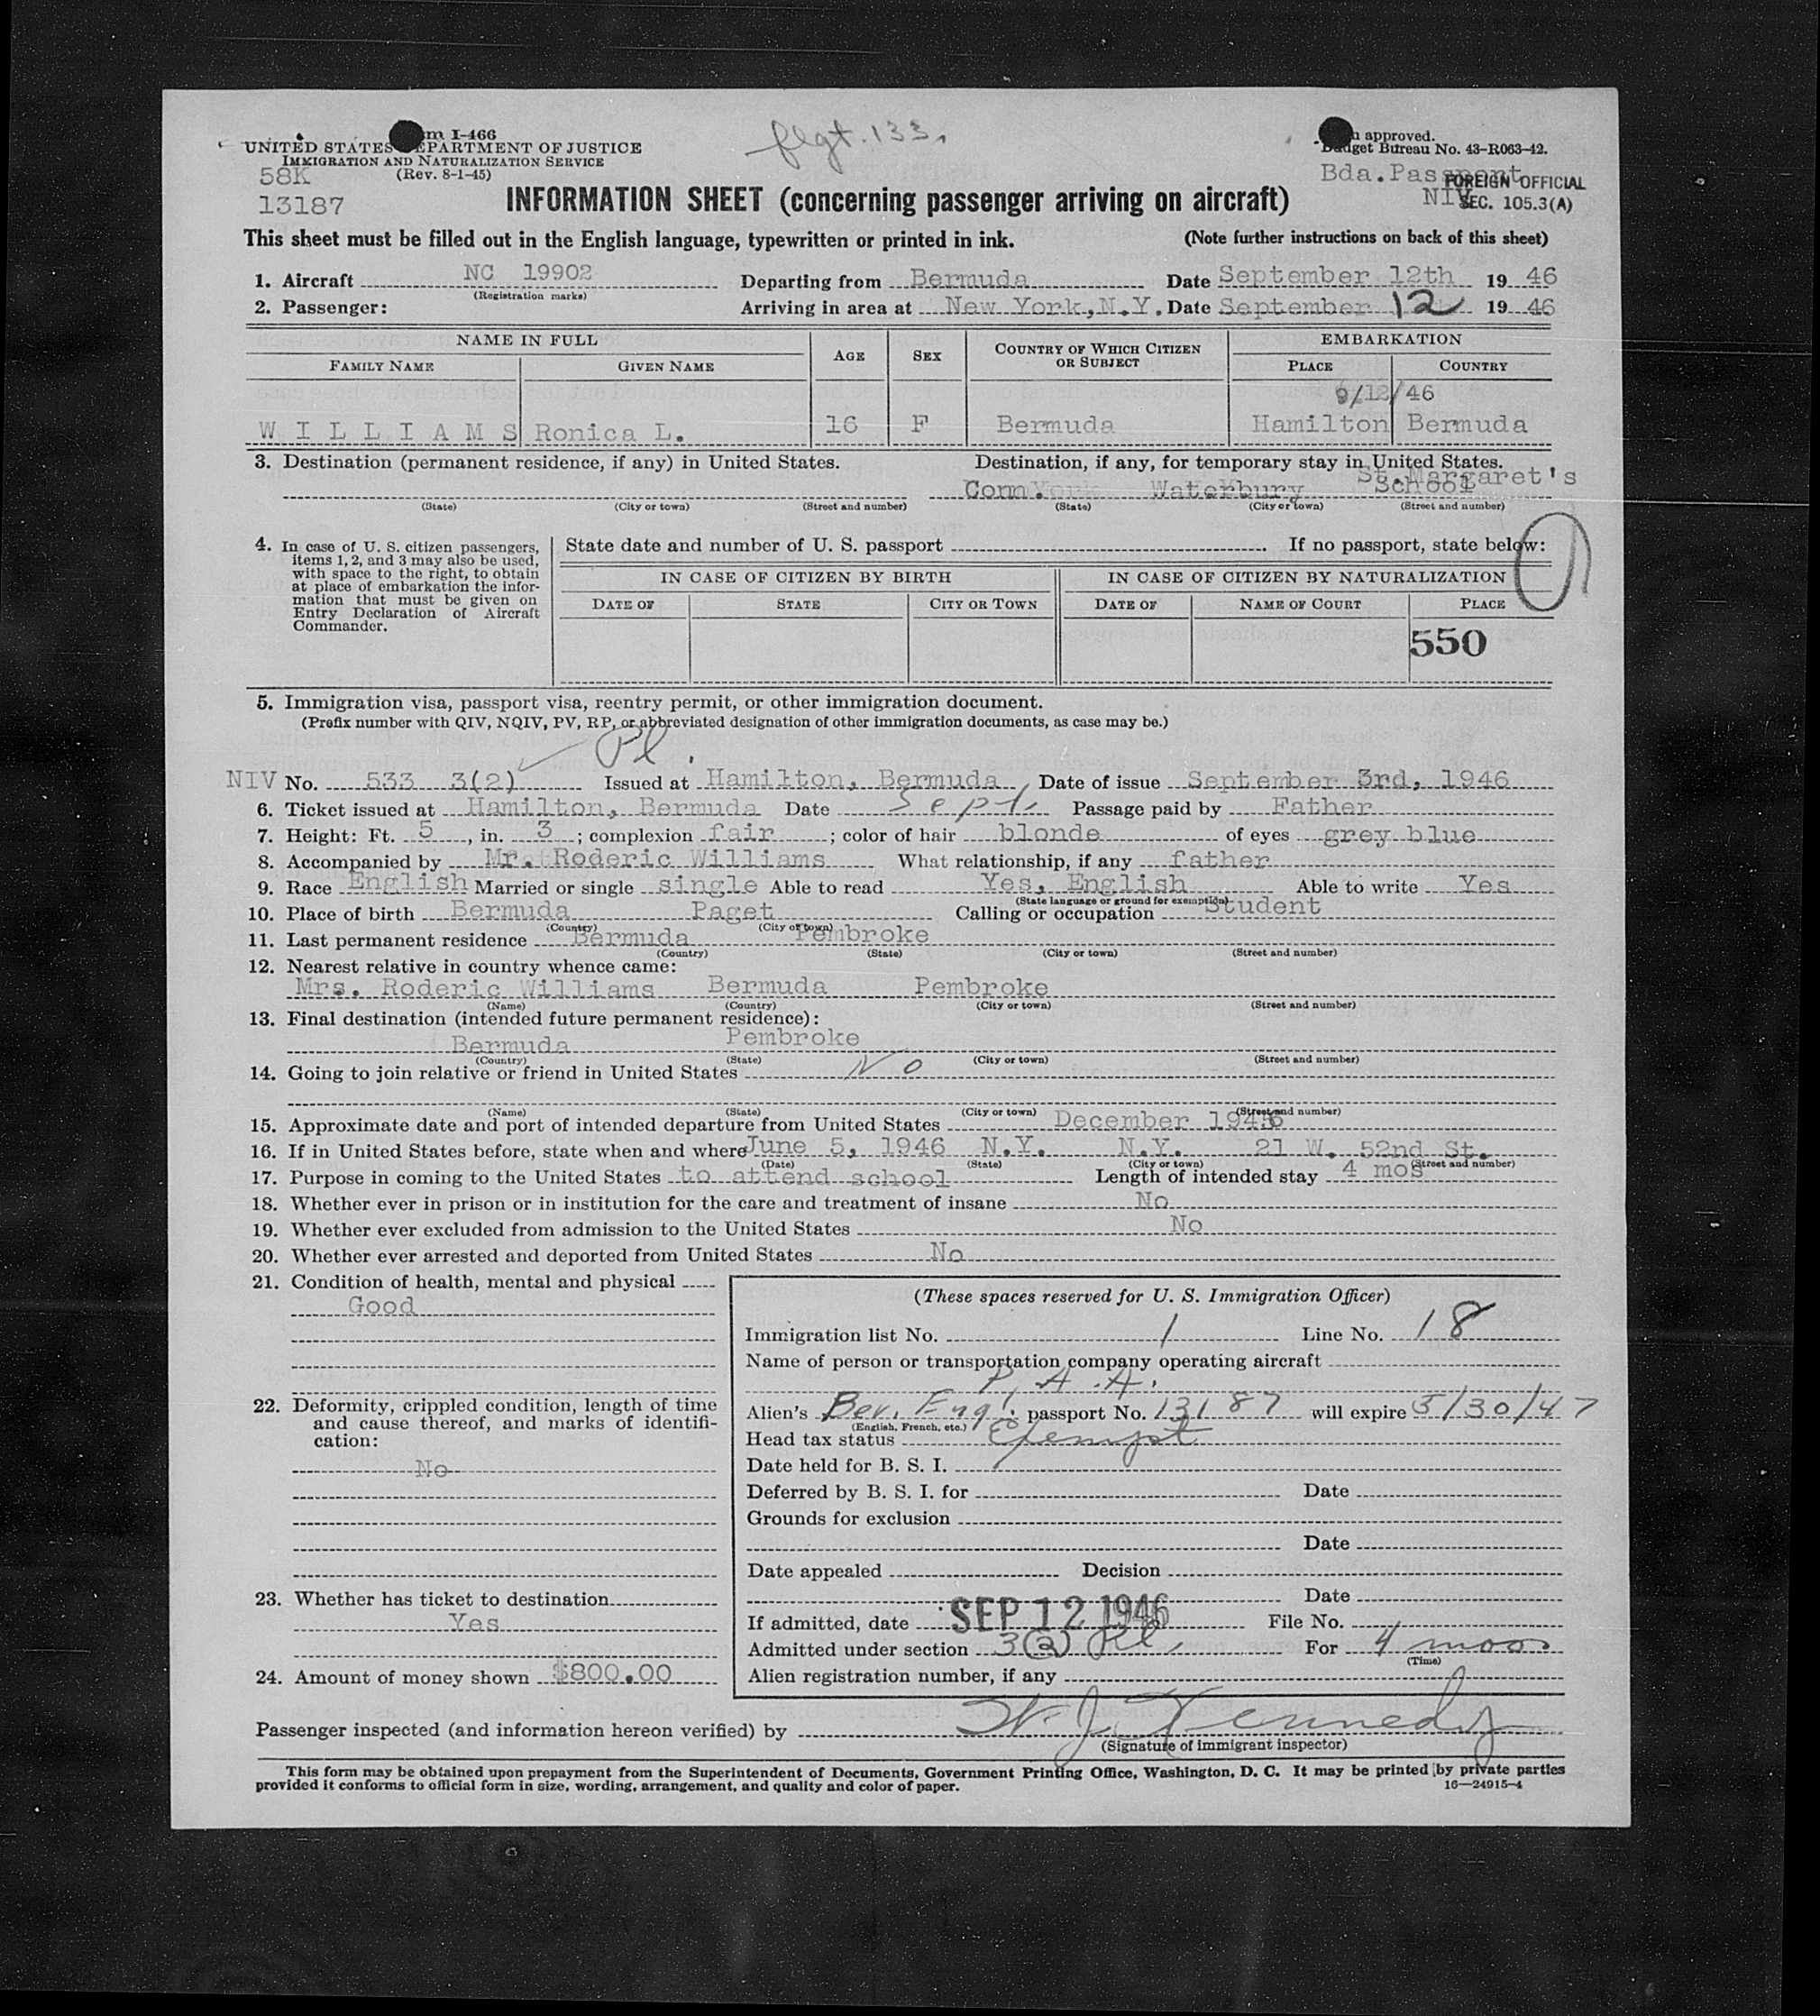 Form I-466
UNITED STATES DEPARTMENT OF JUSTICE
IMMIGRATION AND NATURALIZATION SERVICE
(Rev. 8-1-45)
58K
13187
flgt. 133.
Form approved.
Budget Bureau No. 43-R063-42.
Bda. Passport
NIV
FOREIGN OFFICIAL
SEC. 105.3(A)
INFORMATION SHEET (concerning passenger arriving on aircraft)
This sheet must be filled out in the English language, typewritten or printed in ink. (Note further instructions on back of this sheet)
1. Aircraft NC 19902 Departing from Bermuda Date September 12th 19 46
(Registration marks)
2. Passenger: Arriving in area at New York, N.Y. Date September 12 19 46
NAME IN FULL AGE SEX COUNTRY OF WHICH CITIZEN OR SUBJECT EMBARKATION
FAMILY NAME GIVEN NAME PLACE COUNTRY
9/12/46
W I L L I A M S Ronica L. 16 F Bermuda Hamilton Bermuda
3. Destination (permanent residence, if any) in United States. Destination, if any, for temporary stay in United States.
Conn. Waterbury St. Margaret's School
(State) (City or town) (Street and number) (State) (City or town) (Street and number)
4. In case of U. S. citizen passengers, items 1, 2, and 3 may also be used, with space to the right, to obtain at place of embarkation the information that must be given on Entry Declaration of Aircraft Commander.
State date and number of U. S. passport If no passport, state below:
IN CASE OF CITIZEN BY BIRTH IN CASE OF CITIZEN BY NATURALIZATION
DATE OF STATE CITY OR TOWN DATE OF NAME OF COURT PLACE
550
5. Immigration visa, passport visa, reentry permit, or other immigration document.
(Prefix number with QIV, NQIV, PV, RP, or abbreviated designation of other immigration documents, as case may be.)
Pl.
NIV No. 533 3(2) Issued at Hamilton, Bermuda Date of issue September 3rd, 1946
6. Ticket issued at Hamilton, Bermuda Date Sept. Passage paid by Father
7. Height: Ft. 5, in. 3; complexion fair; color of hair blonde of eyes grey blue
8. Accompanied by Mr. Roderic Williams What relationship, if any father
9. Race English Married or single single Able to read Yes, English Able to write Yes
(State language or ground for exemption)
10. Place of birth Bermuda Paget Calling or occupation Student
(Country) (City or town)
11. Last permanent residence Bermuda Pembroke
(Country) (State) (City or town) (Street and number)
12. Nearest relative in country whence came:
Mrs. Roderic Williams Bermuda Pembroke
(Name) (Country) (City or town) (Street and number)
13. Final destination (intended future permanent residence):
Bermuda Pembroke
(Country) (State) (City or town) (Street and number)
14. Going to join relative or friend in United States No
(Name) (State) (City or town) (Street and number)
15. Approximate date and port of intended departure from United States December 1946
16. If in United States before, state when and where June 5, 1946 N.Y. N.Y. 21 W. 52nd St.
(Date) (State) (City or town) (Street and number)
17. Purpose in coming to the United States to attend school Length of intended stay 4 mos
18. Whether ever in prison or in institution for the care and treatment of insane No
19. Whether ever excluded from admission to the United States No
20. Whether ever arrested and deported from United States No
21. Condition of health, mental and physical
Good
22. Deformity, crippled condition, length of time and cause thereof, and marks of identification:
No
23. Whether has ticket to destination
Yes
24. Amount of money shown $800.00
(These spaces reserved for U. S. Immigration Officer)
Immigration list No. 1 Line No. 18
Name of person or transportation company operating aircraft
P. A. A.
Alien's Ber. Engl. passport No. 13187 will expire 5/30/47
(English, French, etc.)
Head tax status Exempt
Date held for B. S. I.
Deferred by B. S. I. for Date
Grounds for exclusion
Date
Date appealed Decision
Date
If admitted, date SEP 12 1946 File No.
Admitted under section 3(2) Pl. For 4 mos
(Time)
Alien registration number, if any
Passenger inspected (and information hereon verified) by W. J. Kennedy
(Signature of immigrant inspector)
This form may be obtained upon prepayment from the Superintendent of Documents, Government Printing Office, Washington, D. C. It may be printed by private parties
provided it conforms to official form in size, wording, arrangement, and quality and color of paper. 16—24915-4